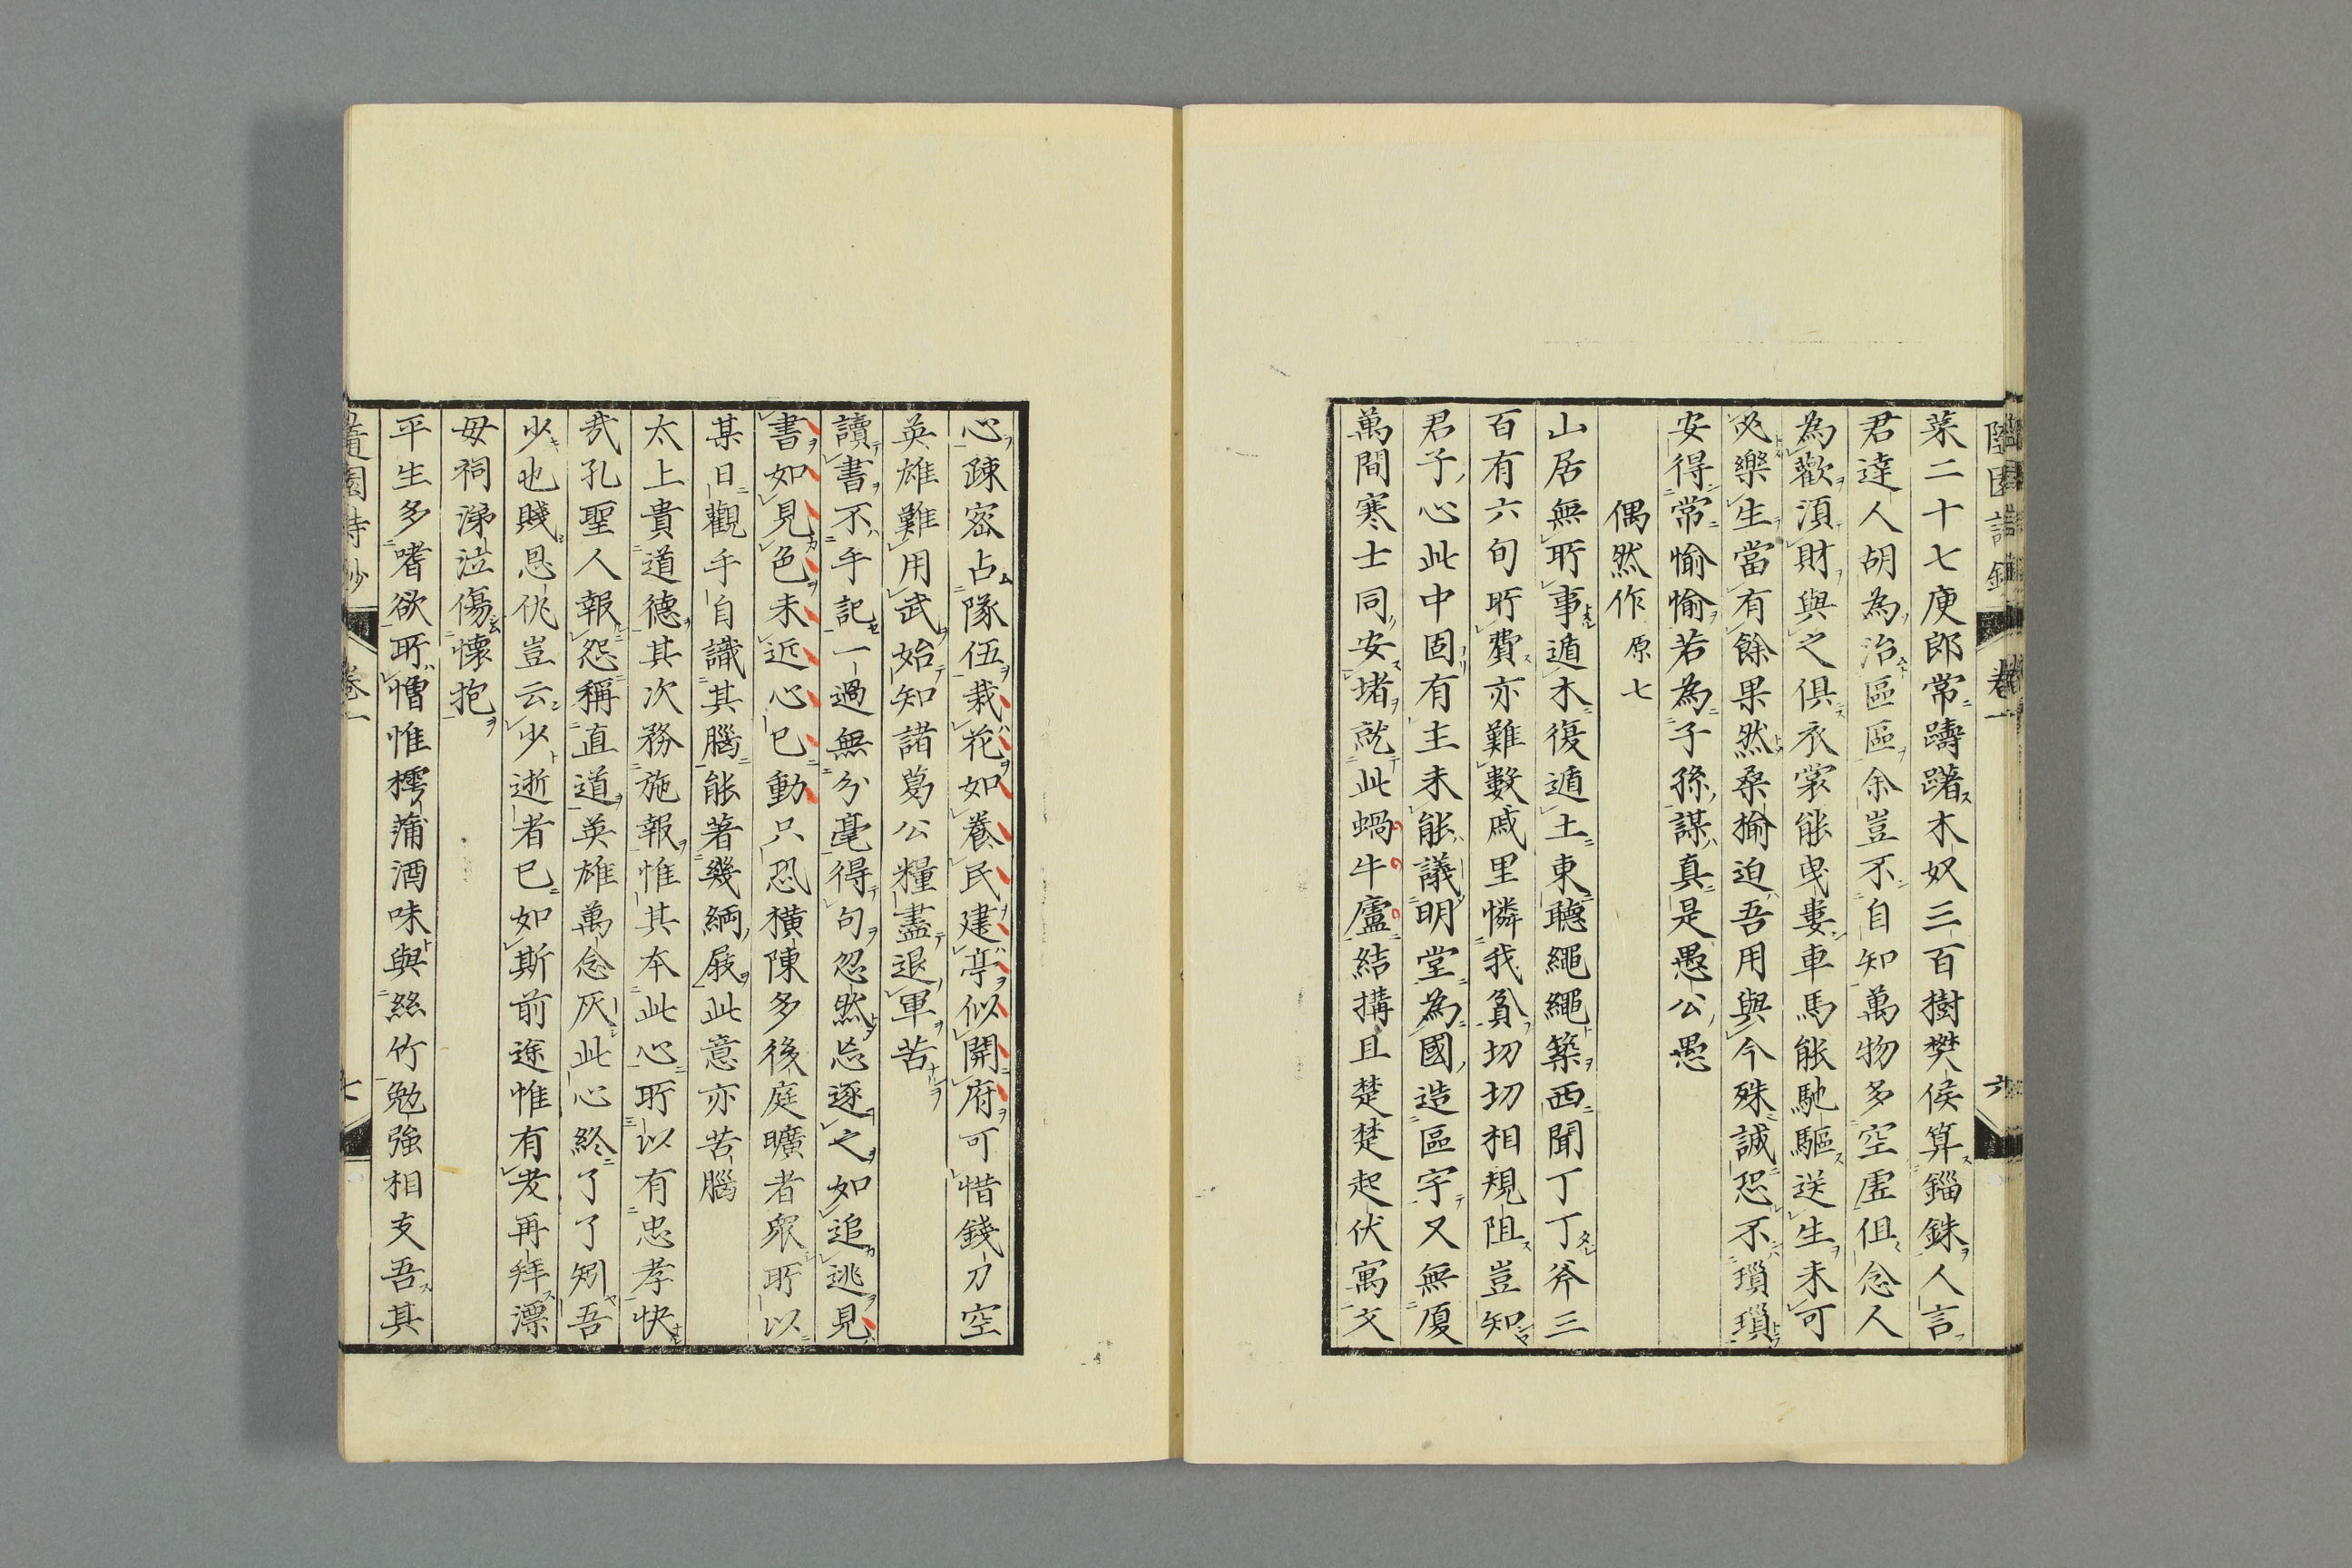 菜二十七庾郎常躊躇木奴三百樹樊侯算錙銖人言
君達人胡為治區區余豈不自知萬物多空虛伹念人
為歡湏財與之俱衣裳能曳婁車馬能馳驅送生未可
必樂生當有餘果然桑榆迫吾用與今殊誠恐不瑣瑣
安得常愉愉若為子孫謀真是愚公愚
偶然作 原七
山居無所事遁木復遁土東聽繩繩築西聞丁丁斧三
百有六旬所費亦難數戚里憐我貧切切相規阻豈知
君子心此中固有主未能議明堂為國造區宇又無廈
萬間寒士同安堵就此蝸牛廬結搆且楚楚起伏寓文
卷一
六
心疎密占隊伍栽花如養民建亭似開府可惜錢刀空
英雄難用武始知諸葛公糧盡退軍苦
讀書不手記一過無分毫得句忽然忘逐之如追逃見
書如見色未近心已動只恐橫陳多後庭曠者眾所以
某日觀手自識其腦能著幾緉屐此意亦苦腦
太上貴道德其次務施報惟其本此心所以有忠孝快
哉孔聖人報怨稱直道英雄萬念灰此心終了了矧吾
少也賤恩仇豈云少逝者已如斯前途惟有老再拜漂
母祠涕泣傷懷抱
平生多嗜欲所憎惟樗蒲酒味與絲竹勉強相支吾其
隨園詩鈔
卷一
七